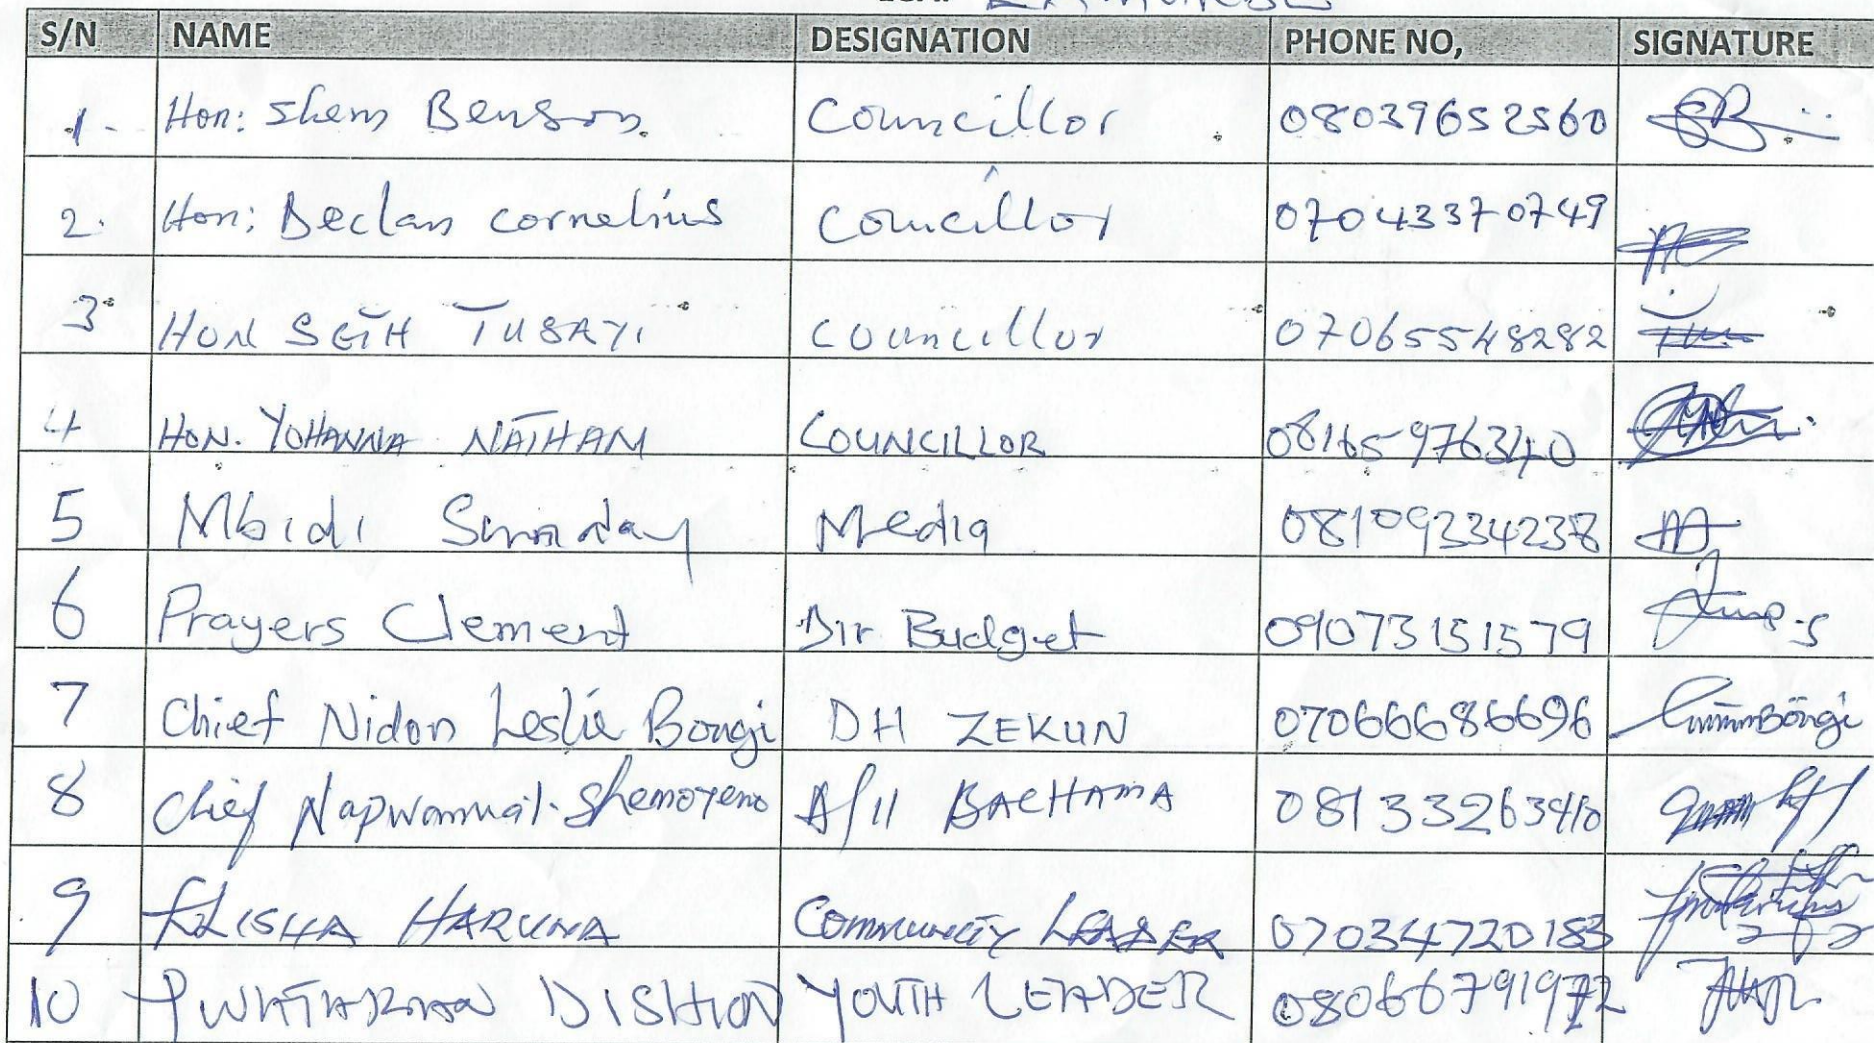 S/N NAME DESIGNATION PHONE NO, SIGNATURE
1. Hon: Shem Benson. Councillor 08039652560
2. Hon: Declan Cornelius Councillor 07043370749
3 HON SETH TUSAYI Councillor 07065548282
4 HON. YOHANNA NATHAN COUNCILLOR 08165976340
5 Mbidi Sunday Media 08109234238
6 Prayers Clement Dir Budget 09073151579
7 Chief Nidon Leslie Bongi DH ZEKUN 07066686696
8 Chief BACHAMA 08133263410
9 ELISHA HARUNA COMMUNITY LEADER 07034720183
10 YOUTH LEADER 08066791972